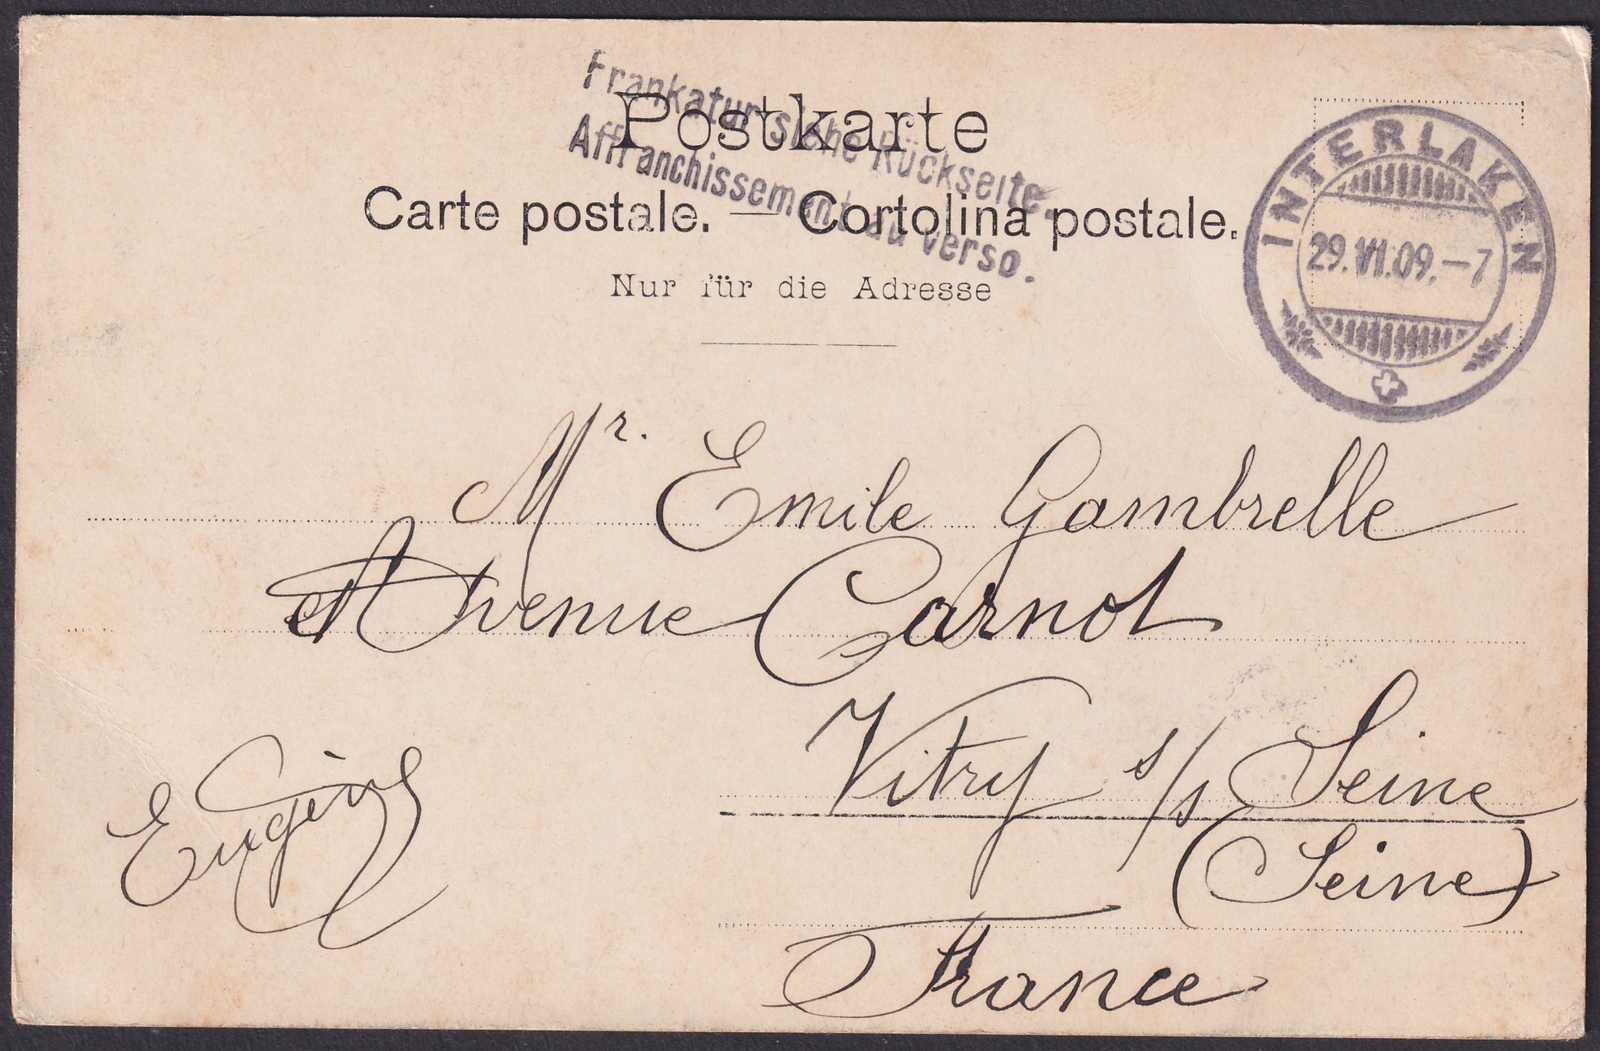 Frankatur siehe Rückseite.
Affranchissement au verso.
Postkarte
Carte postale. — Cortolina postale.
Nur für die Adresse
INTERLAKEN
29.VI.09.–7
Mr. Emile Gambrelle
Avenue Carnot
Vitry s/s Seine
(Seine)
France
Eugène